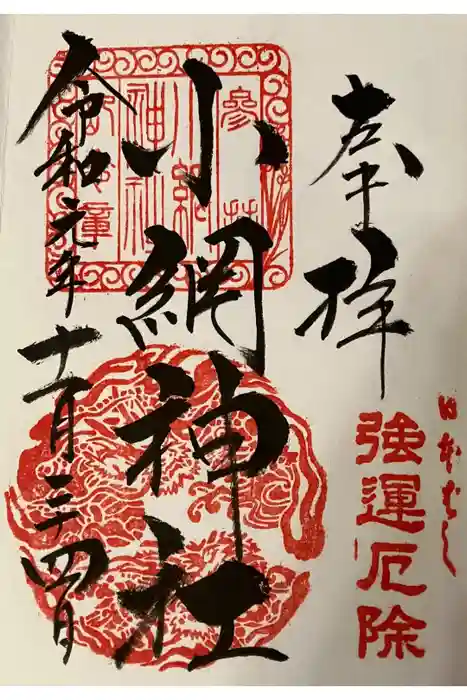 奉拝
日本ばし
強運厄除
小網神社
令和元年十一月二十四日
小網
神社